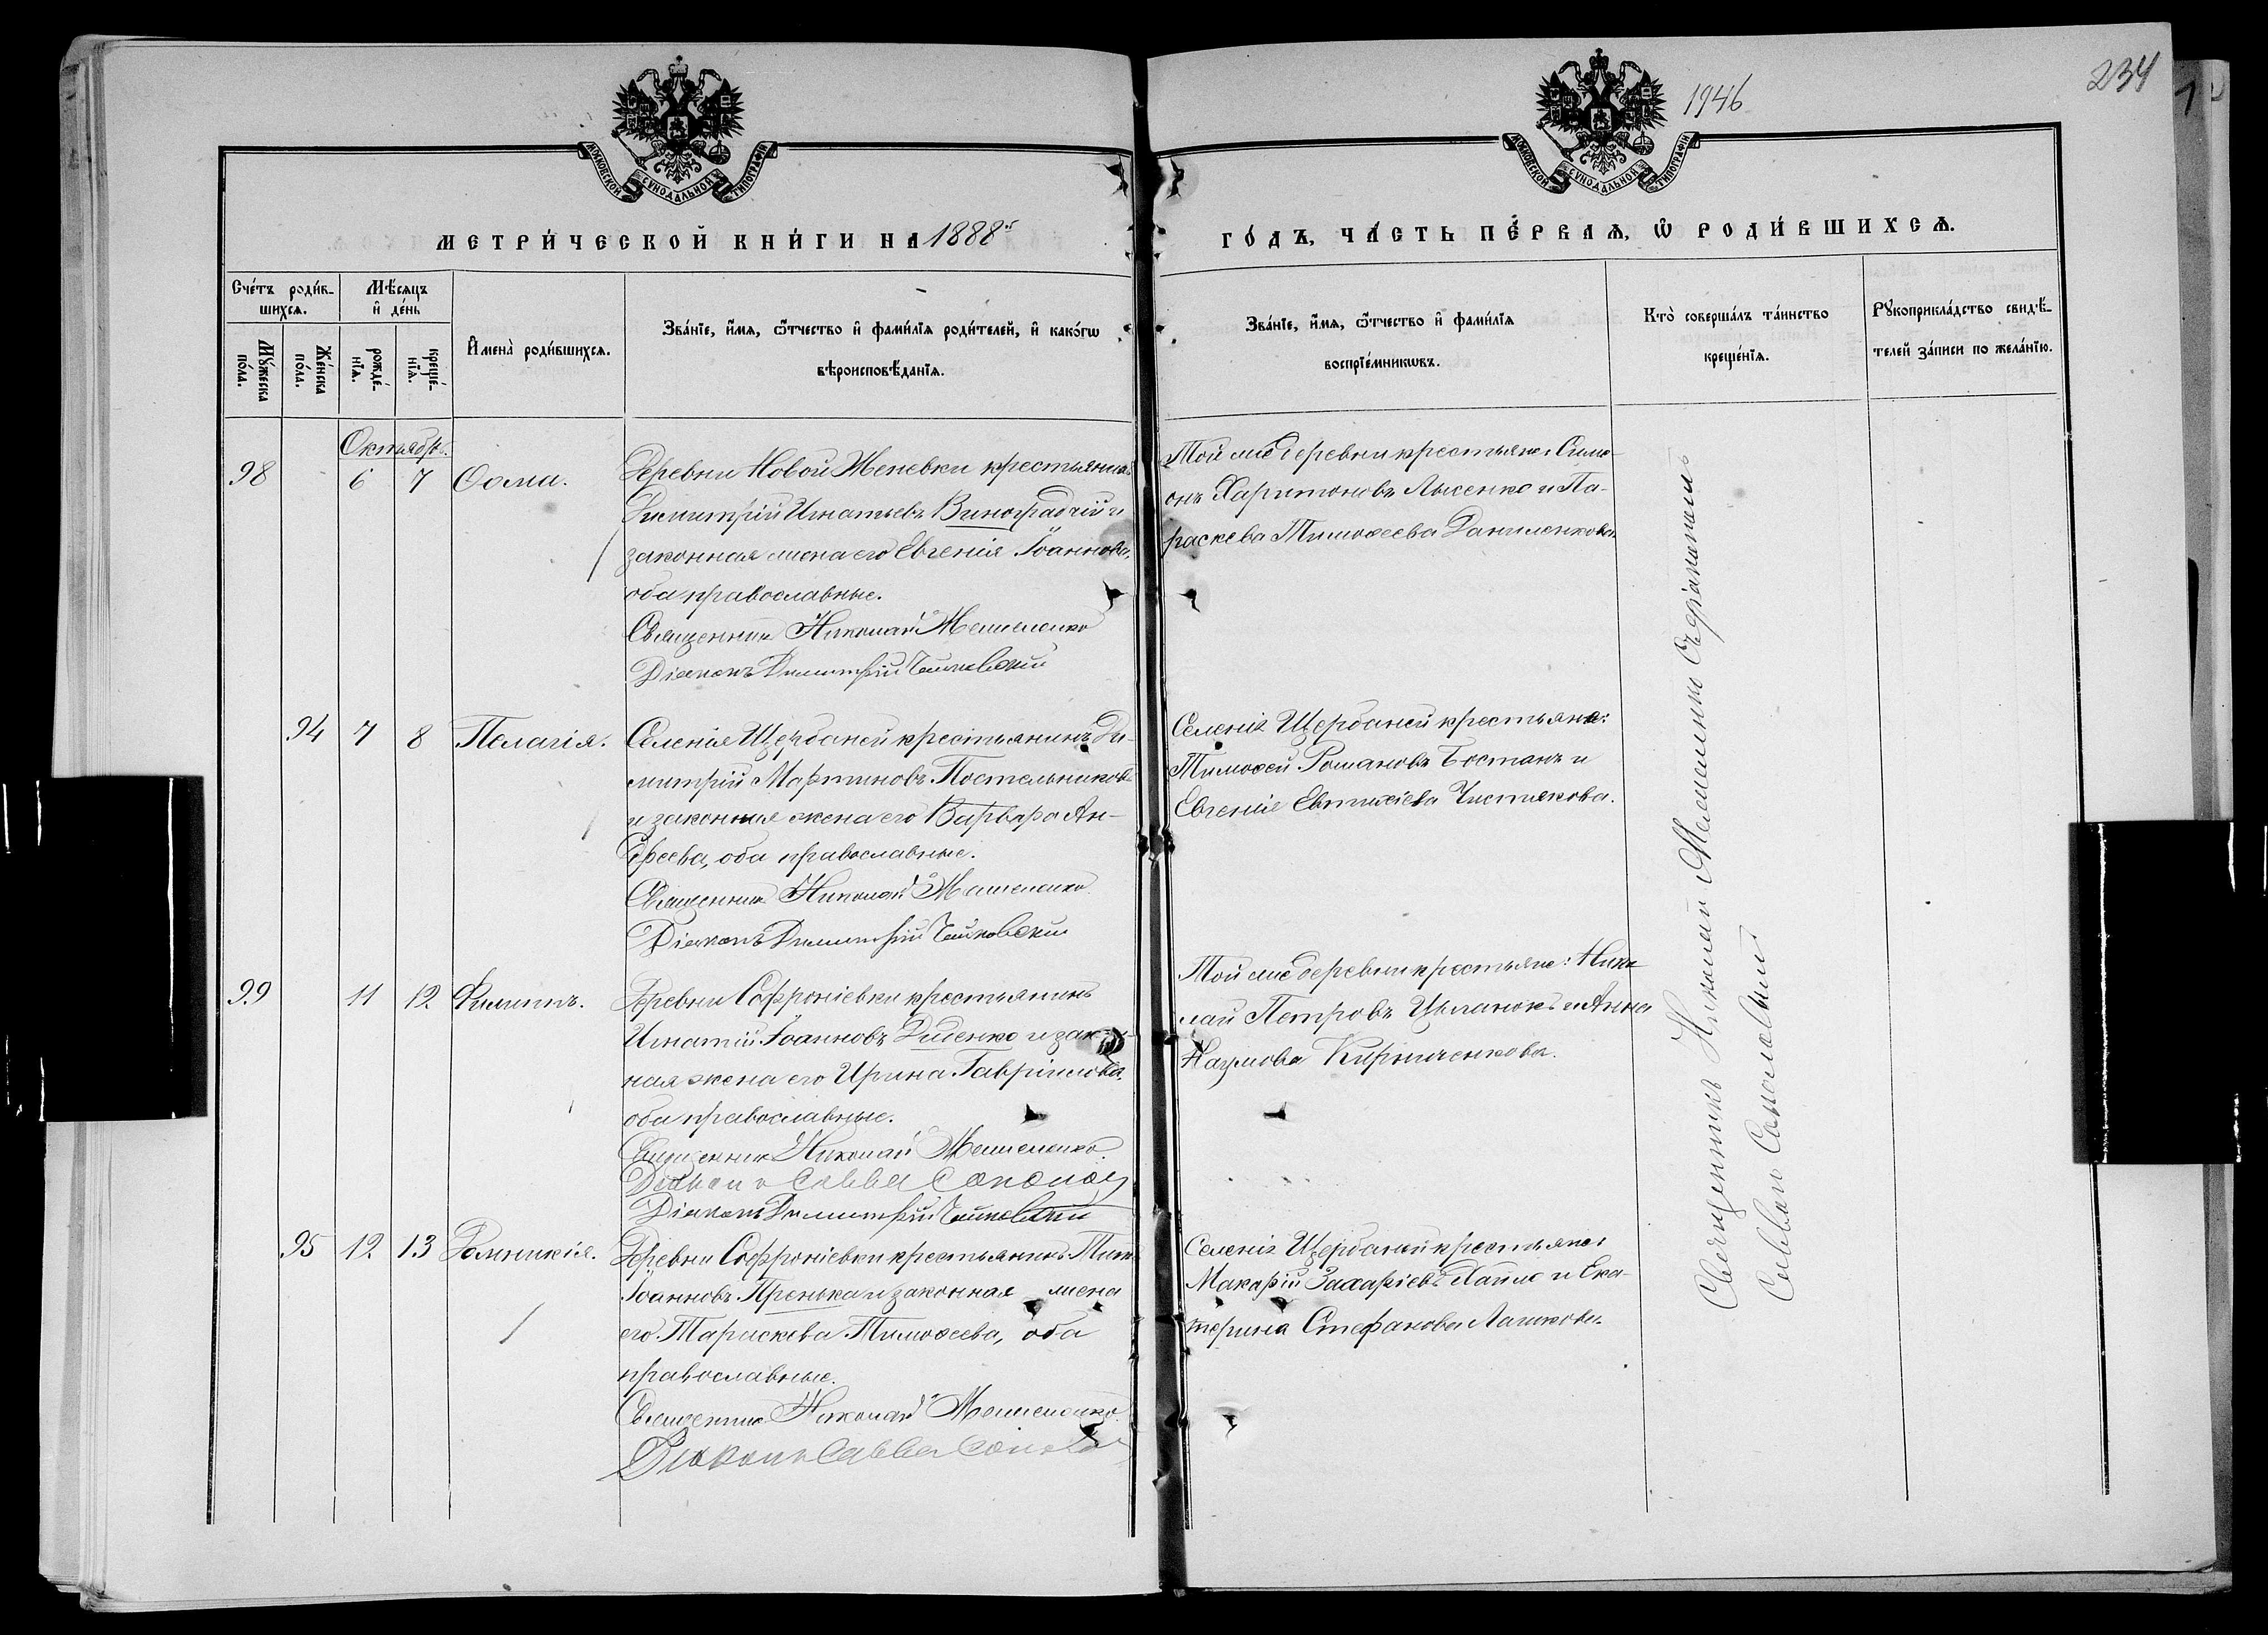 1946
234
МОСКОВСКОЙ СѴНОДАЛЬНОЙ ТИПОГРАФІИ
МОСКОВСКОЙ СѴНОДАЛЬНОЙ ТИПОГРАФІИ
МЕТРИ́ЧЕСКОЙ КНИ́ГИ НА 1888й
ГО́ДЪ, ЧА́СТЬ ПЕ́РВАѦ, Ѡ РОДИ́ВШИХСѦ.
Сче́тъ роди́в-
шихсѧ.
Мѣ́сѧцъ
и҆ де́нь
Мꙋ́жеска
по́ла.
Же́нска
по́ла.
рожде́-
нїѧ.
креще́-
нїѧ.
И҆мена̀ роди́вшихсѧ.
Зва́нїе, и҆́мѧ, ѻ҆́тчество и҆ фами́лїѧ роди́телей, и҆ како́гѡ
вѣроисповѣ́данїѧ.
Зва́нїе, и҆́мѧ, ѻ҆́тчество и҆ фами́лїѧ
воспрїе́мникѡвъ.
Кто̀ соверша́лъ та́инство
креще́нїѧ.
Рꙋкоприкла́дство свидѣ́-
телей за́писи по жела́нїю.
Октябрь.
98 6 7 Ѳома.
Деревни Новой крестьянинъ
Димитрій Игнатьевъ Виноградчій и
законная жена его Евгенія Іоаннова,
оба православные.
Священникъ Николай Мемеленко
Діаконъ Димитрій Чайковскій
Той же деревни крестьяне: Симе-
онъ Харитоновъ Лысенко и Па-
раскева Тимоѳеева Даниленкова
94 7 8 Пелагія.
Селенія Щербаней крестьянинъ Ди-
митрій Мартиновъ Постельниковъ
и законная жена его Варвара Ан-
дреева, оба православные.
Священникъ Николай Мемеленко
Діаконъ Димитрій Чайковскій
Селенія Щербаней крестьяне:
Тимоѳей Романовъ Бостанъ и
Евгенія Евтихіева Чистякова.
99 11 12 Филиппъ.
Деревни Софроніевки крестьянинъ
Игнатій Іоанновъ Диденко и закон-
ная жена его Ирина Гавріилова,
оба православные.
Священникъ Николай Мемеленко.
Діаконъ Савва
Діаконъ Димитрій Чайковскій
Той же деревни крестьяне: Нико-
лай Петровъ Цыганокъ и Анна
Наумова Кириченкова.
95 12 13 Домникія.
Деревни Софроніевки крестьянинъ
Іоанновъ Пренька и законная жена
его Параскева Тимоѳеева, оба
православные.
Священникъ Николай Мемеленко.
Діаконъ Савва
Селенія Щербаней крестьяне:
Макарій Захаріевъ и Ека-
терина Стефанова
Священникъ Николай Мемеленко съ діакономъ
Саввою